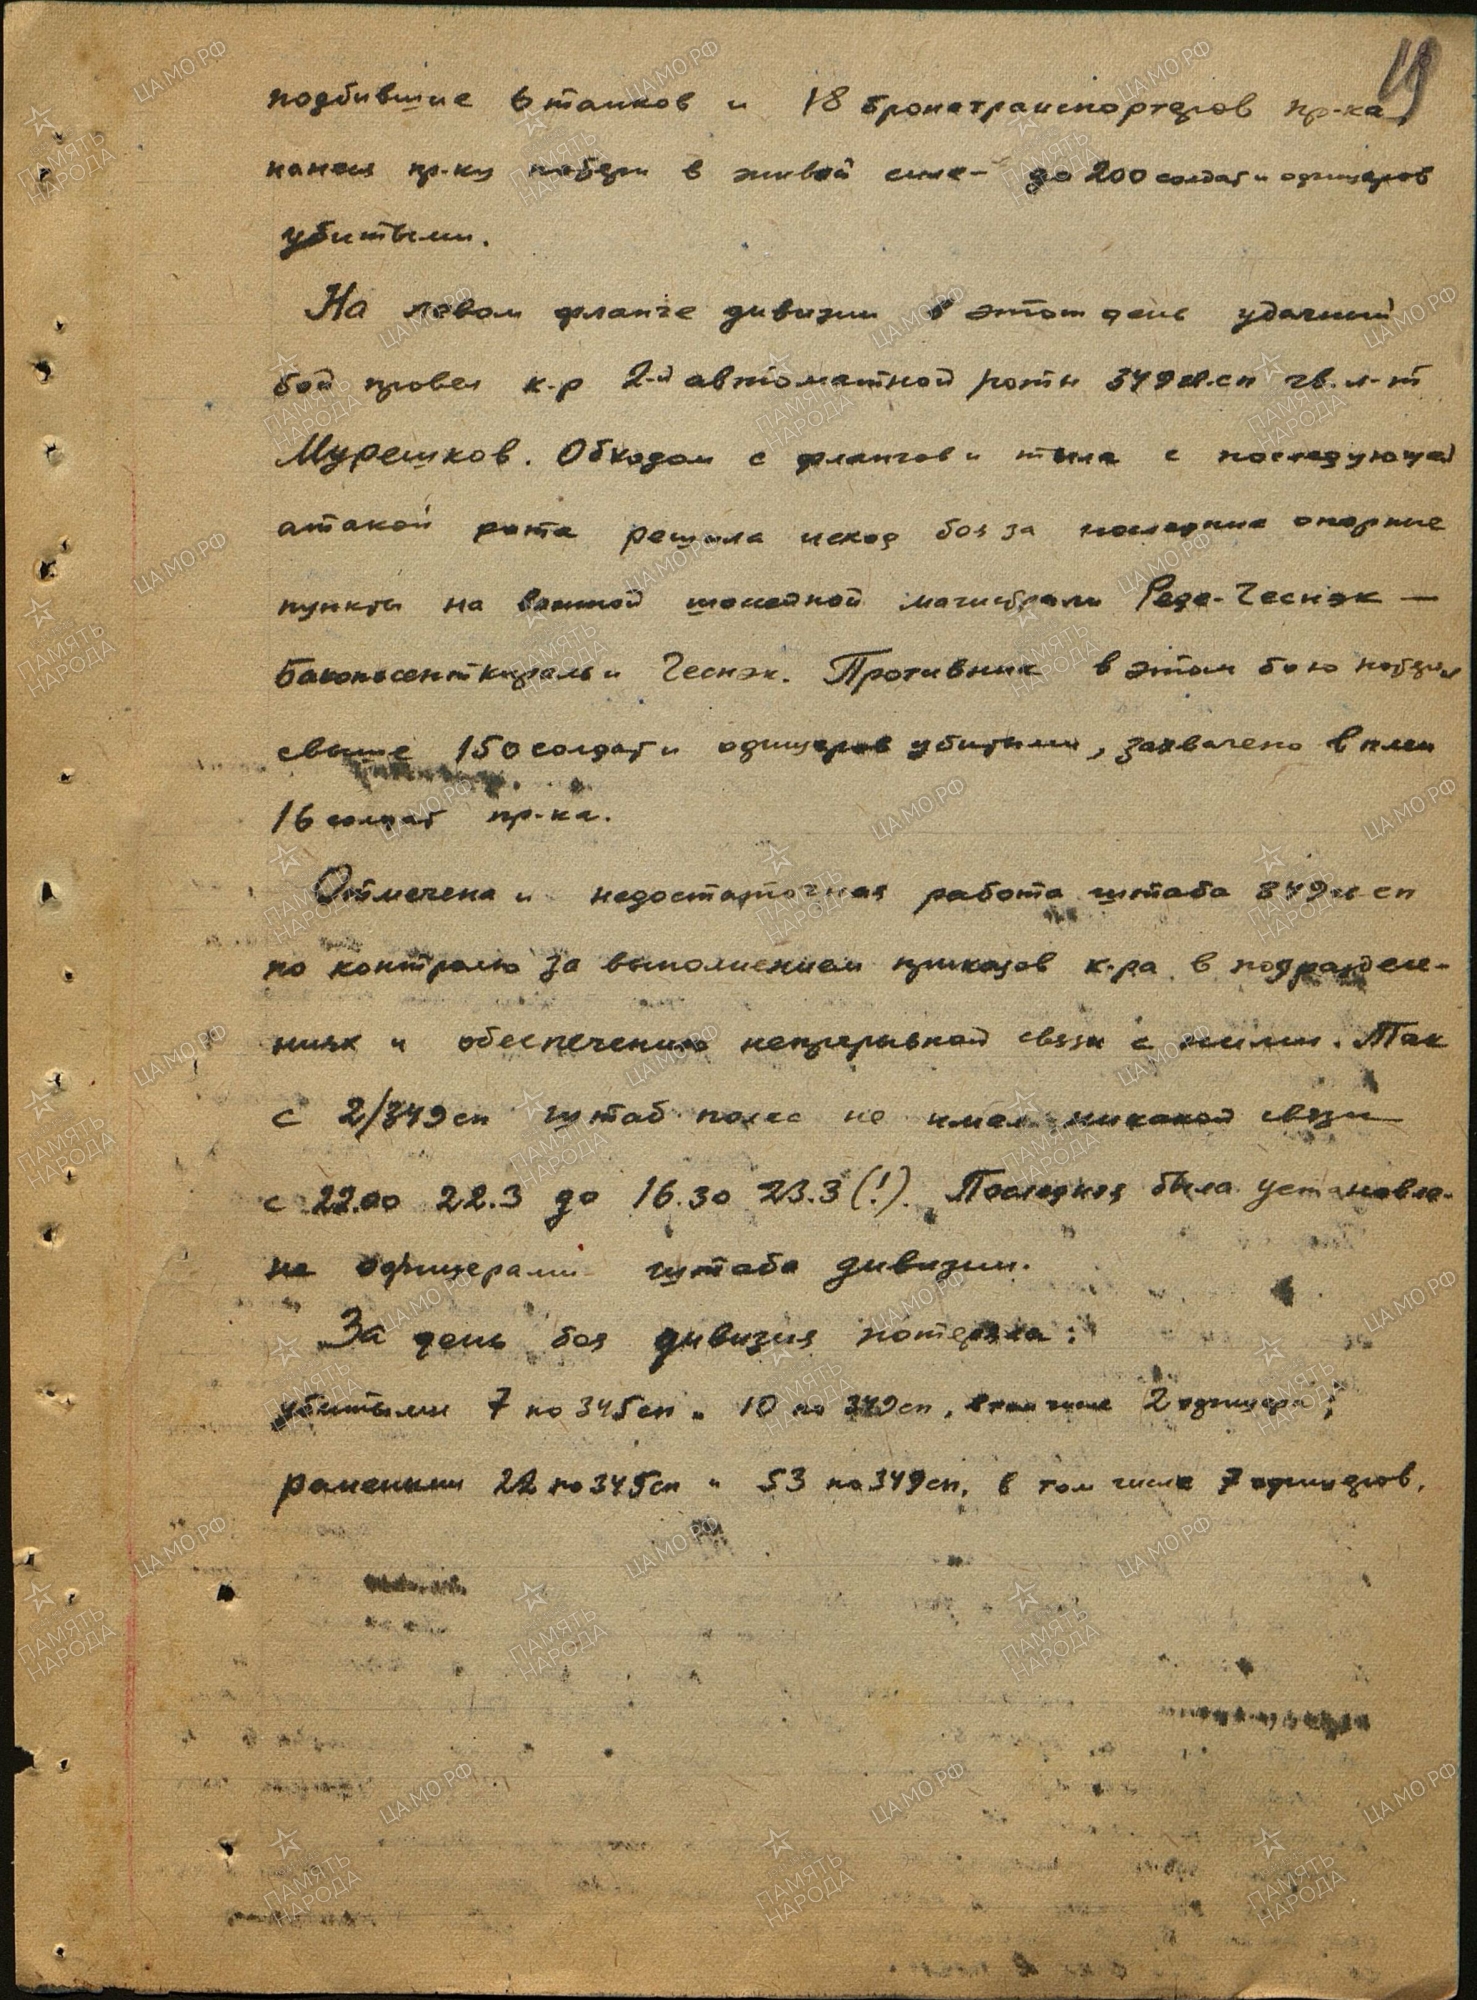 19
подбившие 6 танков и 18 бронетранспортеров пр-ка,
нанеся пр-ку потери в живой силе - до 200 солдат и офицеров
убитыми.
На левом фланге дивизии в этот день удачный
бой провел к-р 2-й автоматной роты 349 сп гв. л-т
Мурешков. Обходом с флангов и тыла с последующей
атакой рота решила исход боя за последние опорные
пункты на важной шоссейной магистрали Реде-Чеснэк —
Баконосенткираль и Чеснэк. Противник в этом бою потерял
свыше 150 солдат и офицеров убитыми, захвачено в плен
16 солдат пр-ка.
Отмечена и недостаточная работа штаба 349 сп
по контролю за выполнением приказов к-ра в подразделе-
ниях и обеспечению непрерывной связи с ними. Так
с 2/349 сп штаб полка не имел никакой связи
с 22.00 22.3 до 16.30 23.3 (!). Последняя была установле-
на офицерами штаба дивизии.
За день боя дивизия потеряла:
убитыми 7 по 345 сп и 10 по 349 сп, в том числе 2 офицера;
ранеными 22 по 345 сп и 53 по 349 сп, в том числе 7 офицеров.
ПАМЯТЬ НАРОДА
ЦА МО РФ